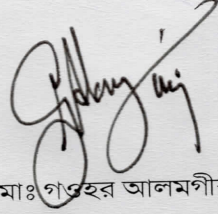 মাঃ গওহর আলমগীর